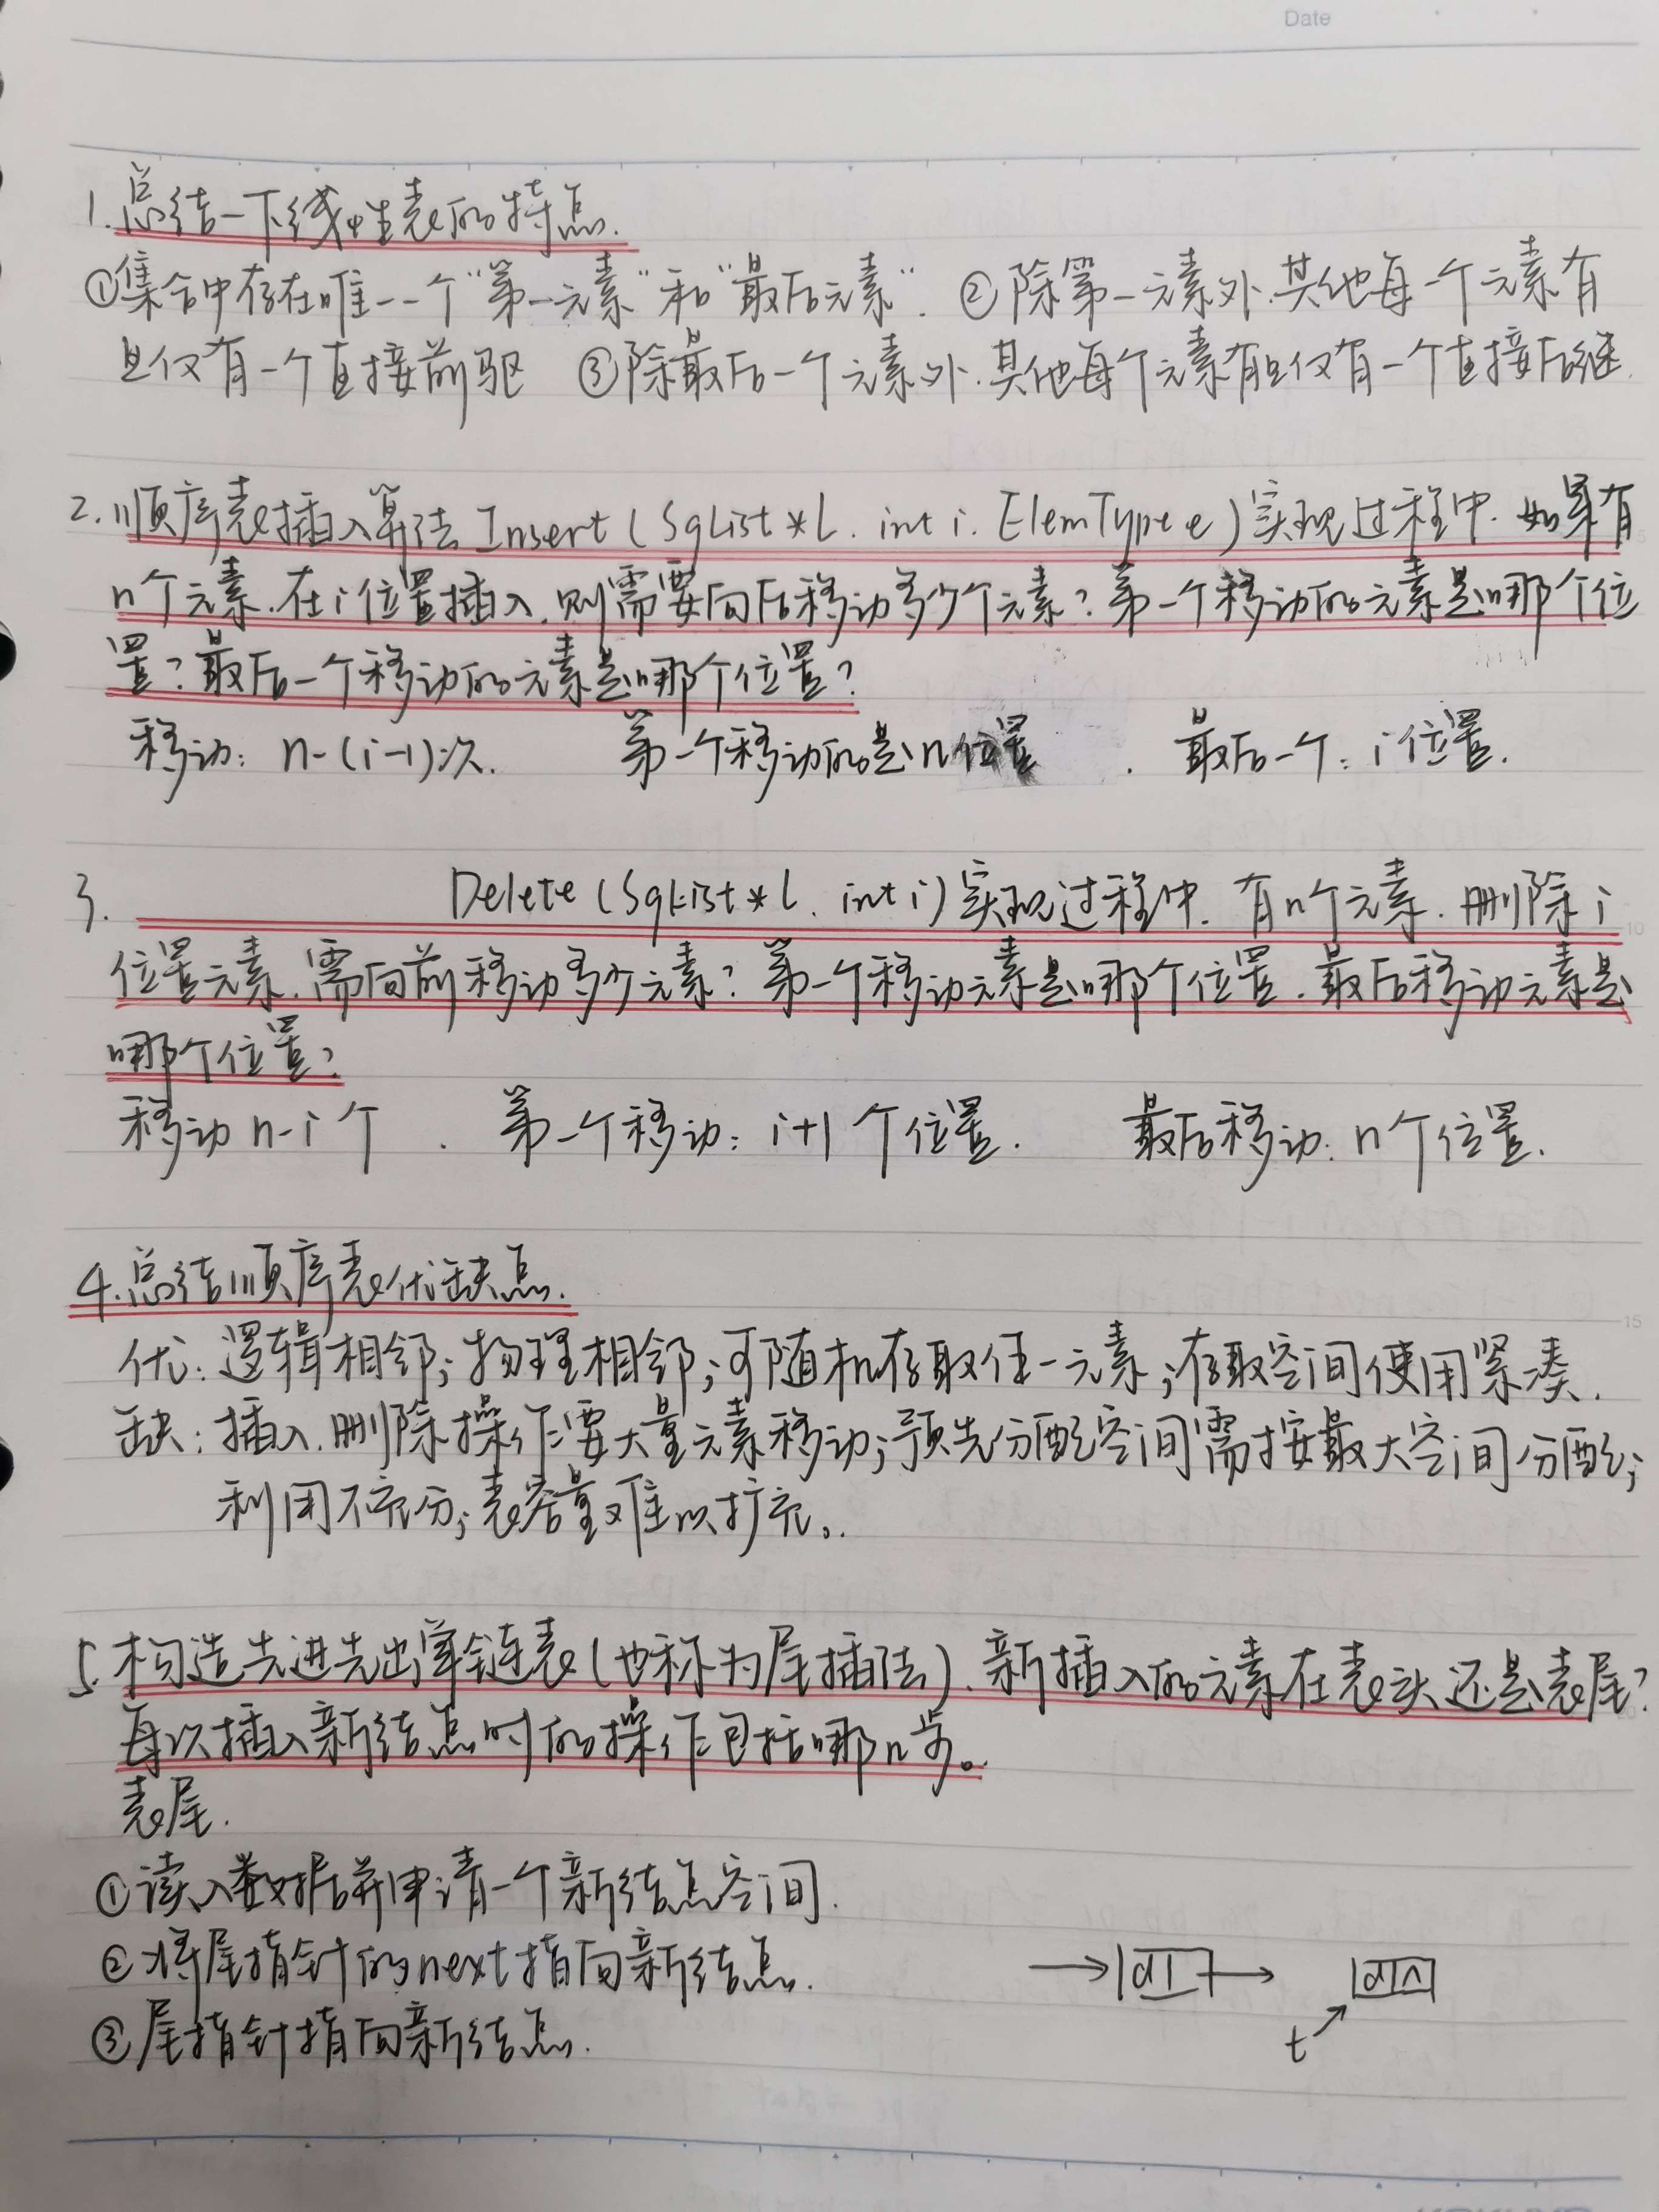 Date
1.总结一下线性表的特点.
①集合中存在唯一一个"第一元素"和"最后元素". ②除第一元素外.其他每一个元素有
且仅有一个直接前驱 ③除最后一个元素外.其他每个元素有且仅有一个直接后继.
2.顺序表插入算法Insert(SqList*L.int i.ElemType e)实现过程中.如果有
n个元素.在i位置插入.则需要向后移动多少个元素?第一个移动的元素是哪个位
置?最后一个移动的元素是哪个位置?
移动:n-(i-1)次. 第一个移动的是n位置. 最后一个:i位置.
3. Delete(SqList*L.int i)实现过程中.有n个元素.删除i
位置元素.需向前移动多少元素?第一个移动元素是哪个位置.最后移动元素是
哪个位置?
移动n-i个. 第一个移动:i+1个位置. 最后移动:n个位置.
4.总结顺序表优缺点.
优:逻辑相邻;物理相邻;可随机存取任一元素;存取空间使用紧凑.
缺:插入.删除操作要大量元素移动;预先分配空间需按最大空间分配;
利用不充分;表容量难以扩充..
5.构造先进先出单链表(也称为尾插法).新插入的元素在表头还是表尾?
每次插入新结点时的操作包括哪几步。
表尾.
①读入数据并申请一个新结点空间.
②将尾指针的next指向新结点.
③尾指针指向新结点.
t